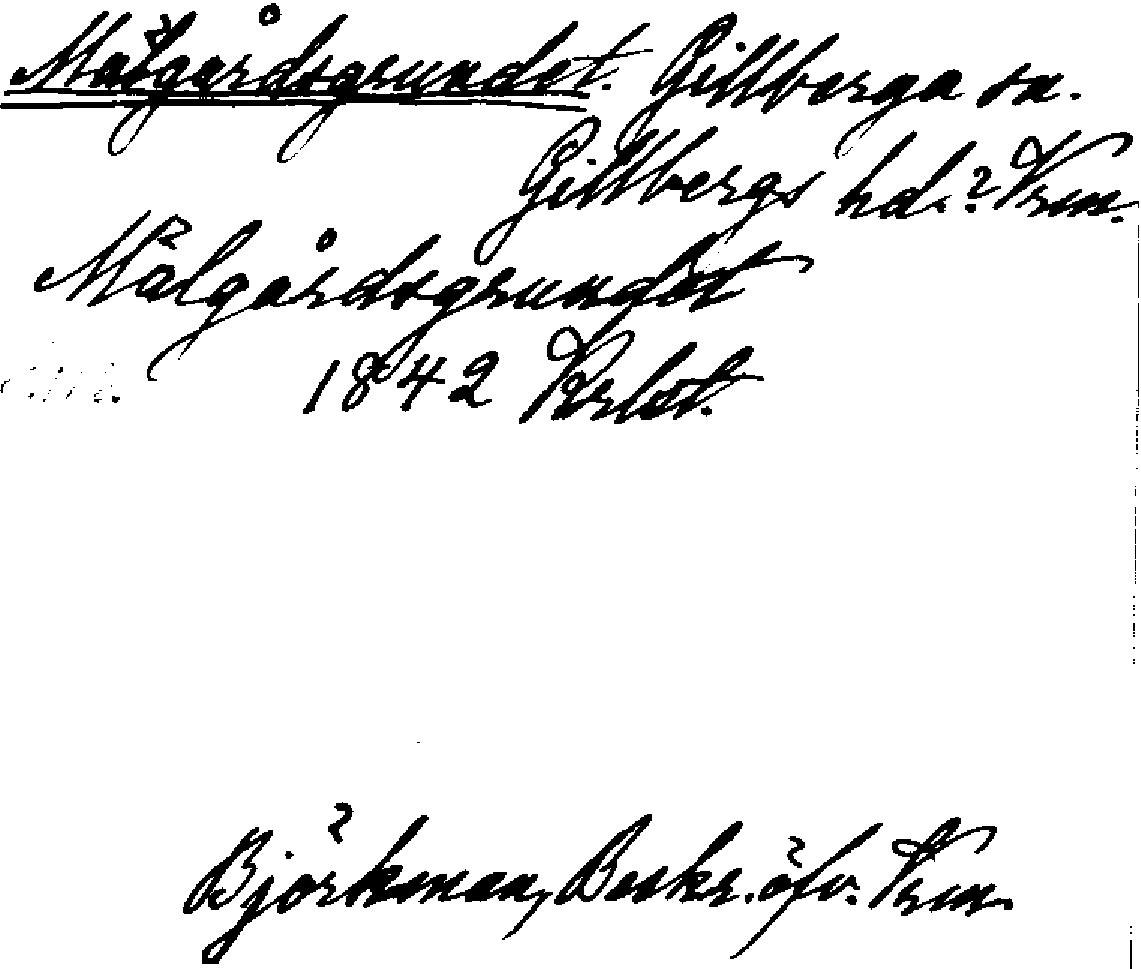 Mälgårdsgrundet. Gillberga sn.
Gillbergs hd.? Vrm.
Mälgårdsgrundet
1842 Krlst.
Björkman, Beskr. öfv. Vrm.